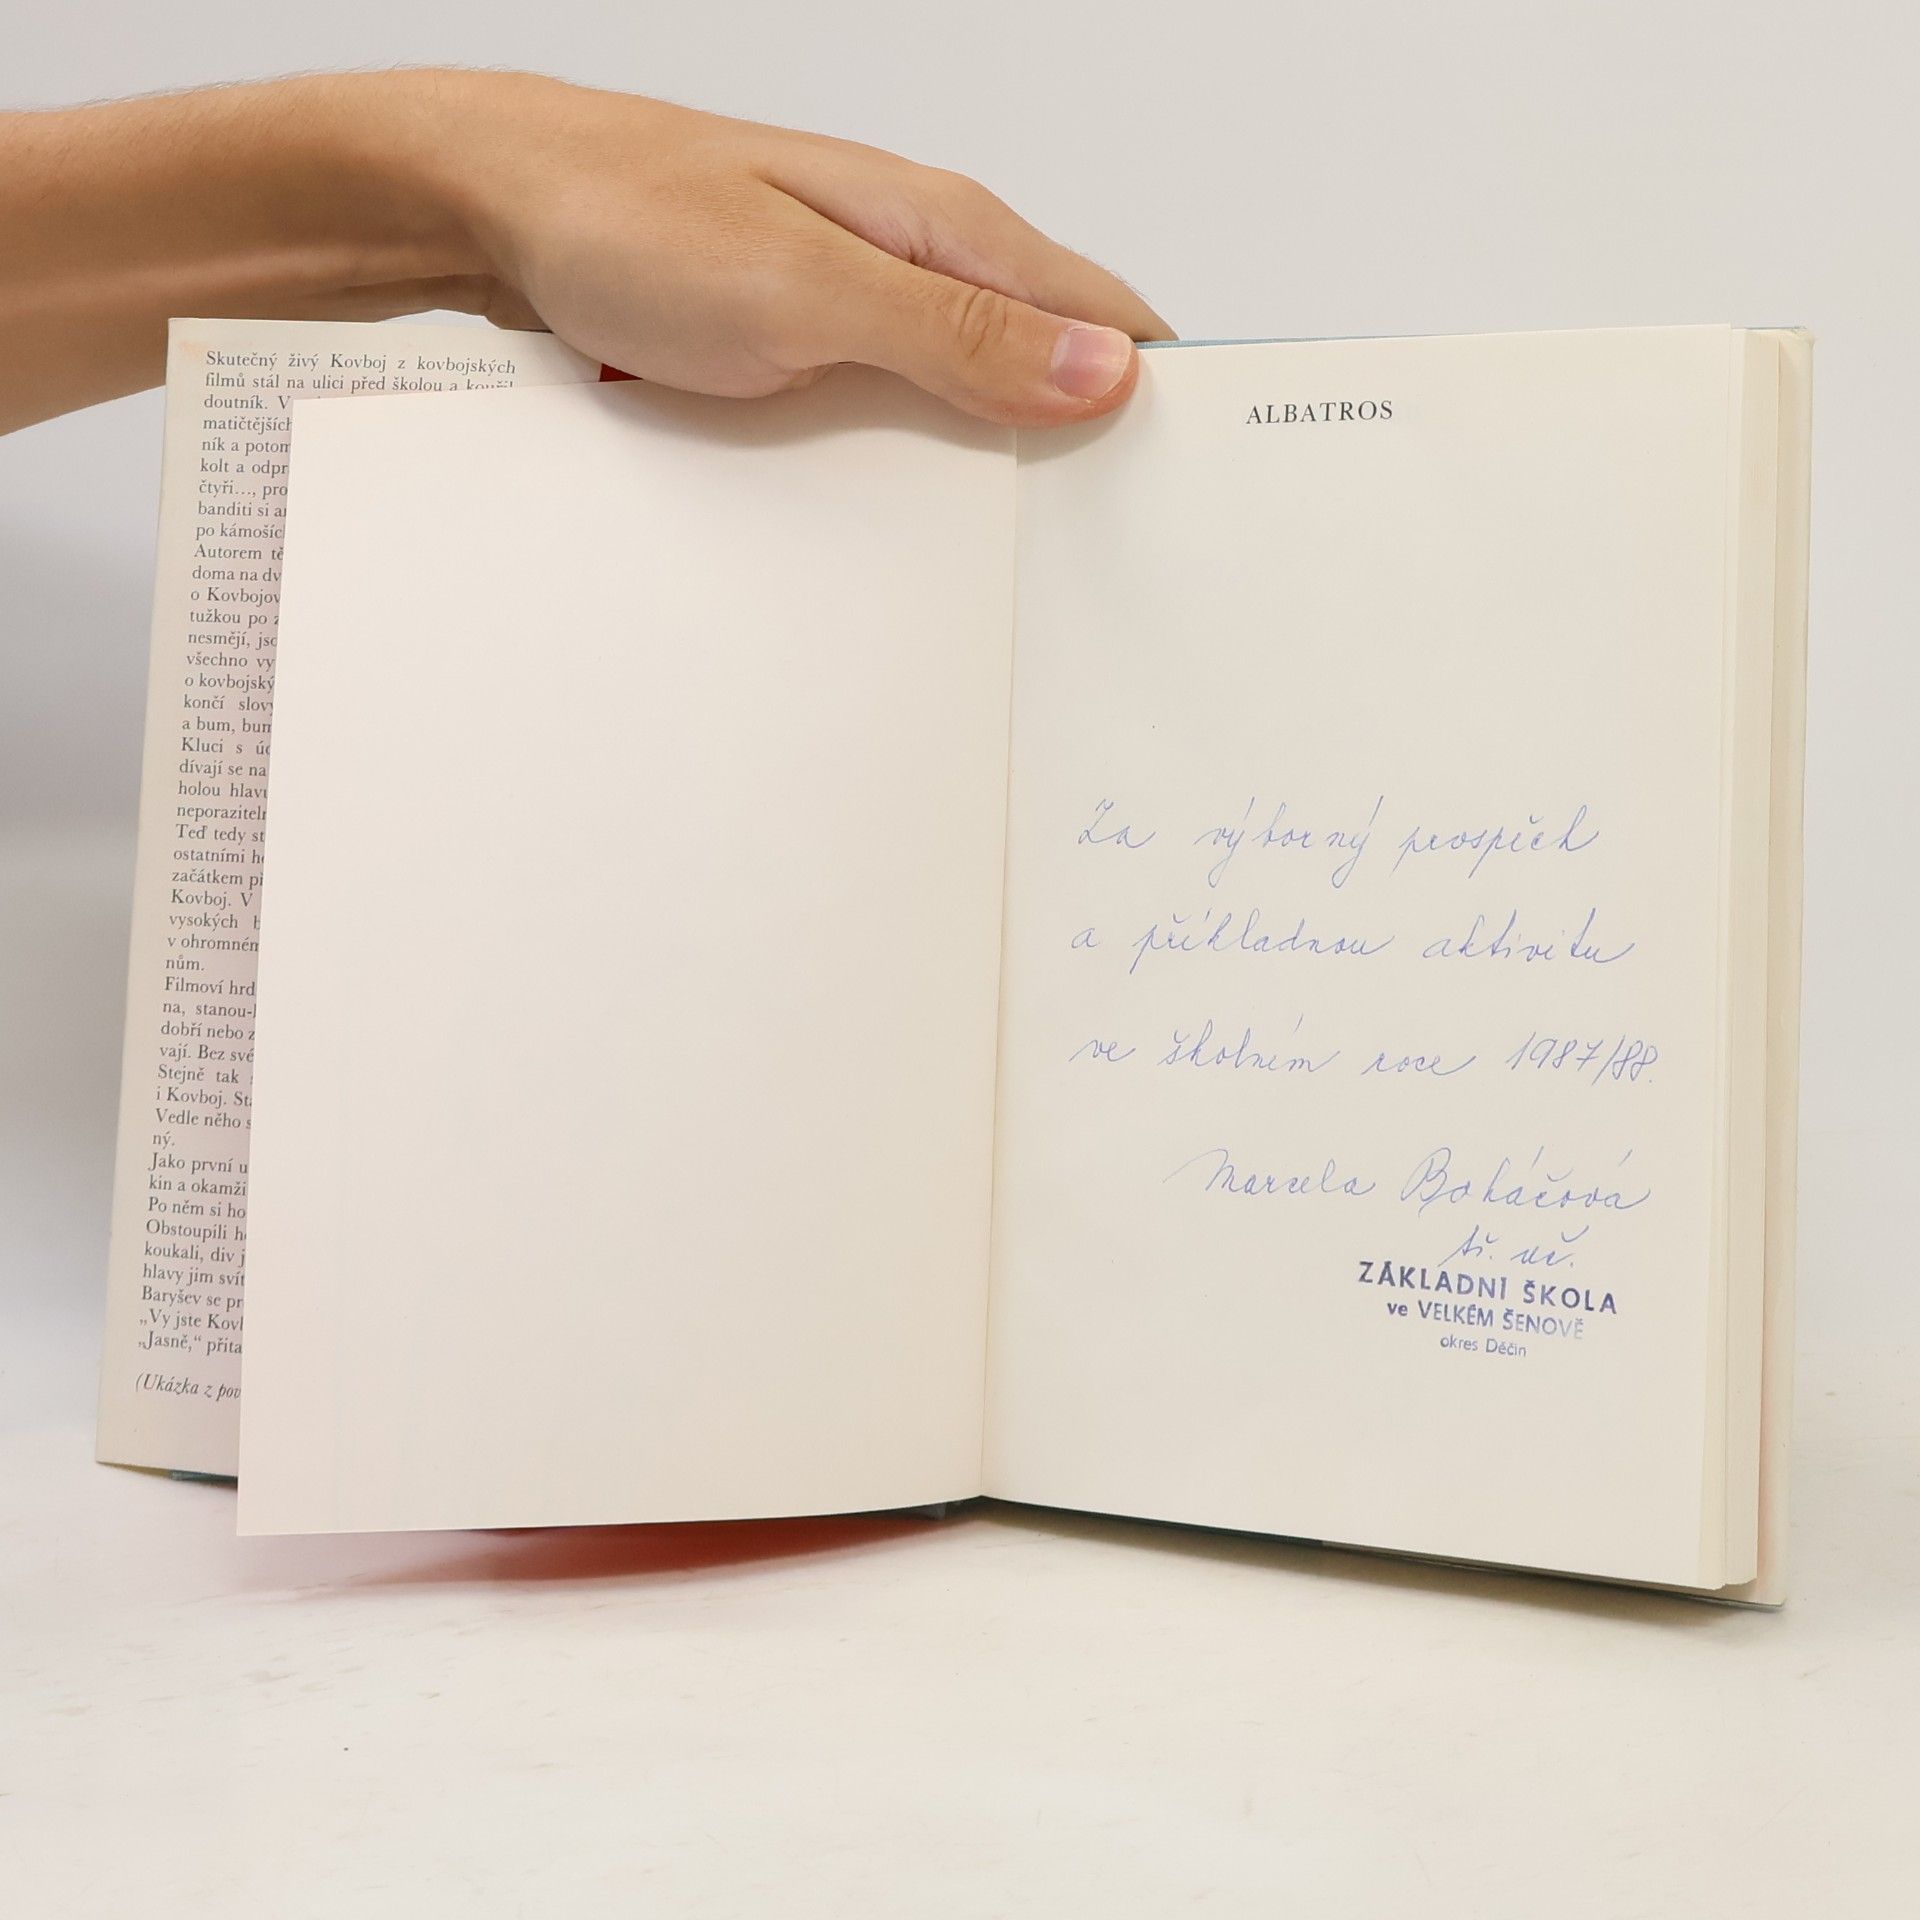 Skutečný živý Kovboj z kovbojských
filmů stál na ulici před školou a kouřil
doutník. V
matičtějších
ník a potom
kolt a odpr
čtyři..., pro
banditi si a
po kámošíc
Autorem tě
doma na dv
o Kovbojov
tužkou po z
nesmějí, jso
všechno vy
o kovbojský
končí slovy
a bum, bum
Kluci s úc
dívají se na
holou hlavu
neporaziteln
Teď tedy st
ostatními h
začátkem př
Kovboj. V
vysokých b
v ohromném
nům.
Filmoví hrd
na, stanou-l
dobří nebo z
vají. Bez své
Stejně tak
i Kovboj. Sta
Vedle něho s
ný.
Jako první u
kin a okamži
Po něm si ho
Obstoupili h
koukali, div j
hlavy jim svít
Baryšev se pr
„Vy jste Kovb
„Jasně,“ přita
(Ukázka z pov
ALBATROS
Za výborný prospěch
a příkladnou aktivitu
ve školním roce 1987/88.
Marcela Boháčová
tř. uč.
ZÁKLADNÍ ŠKOLA
ve VELKÉM ŠENOVĚ
okres Děčín